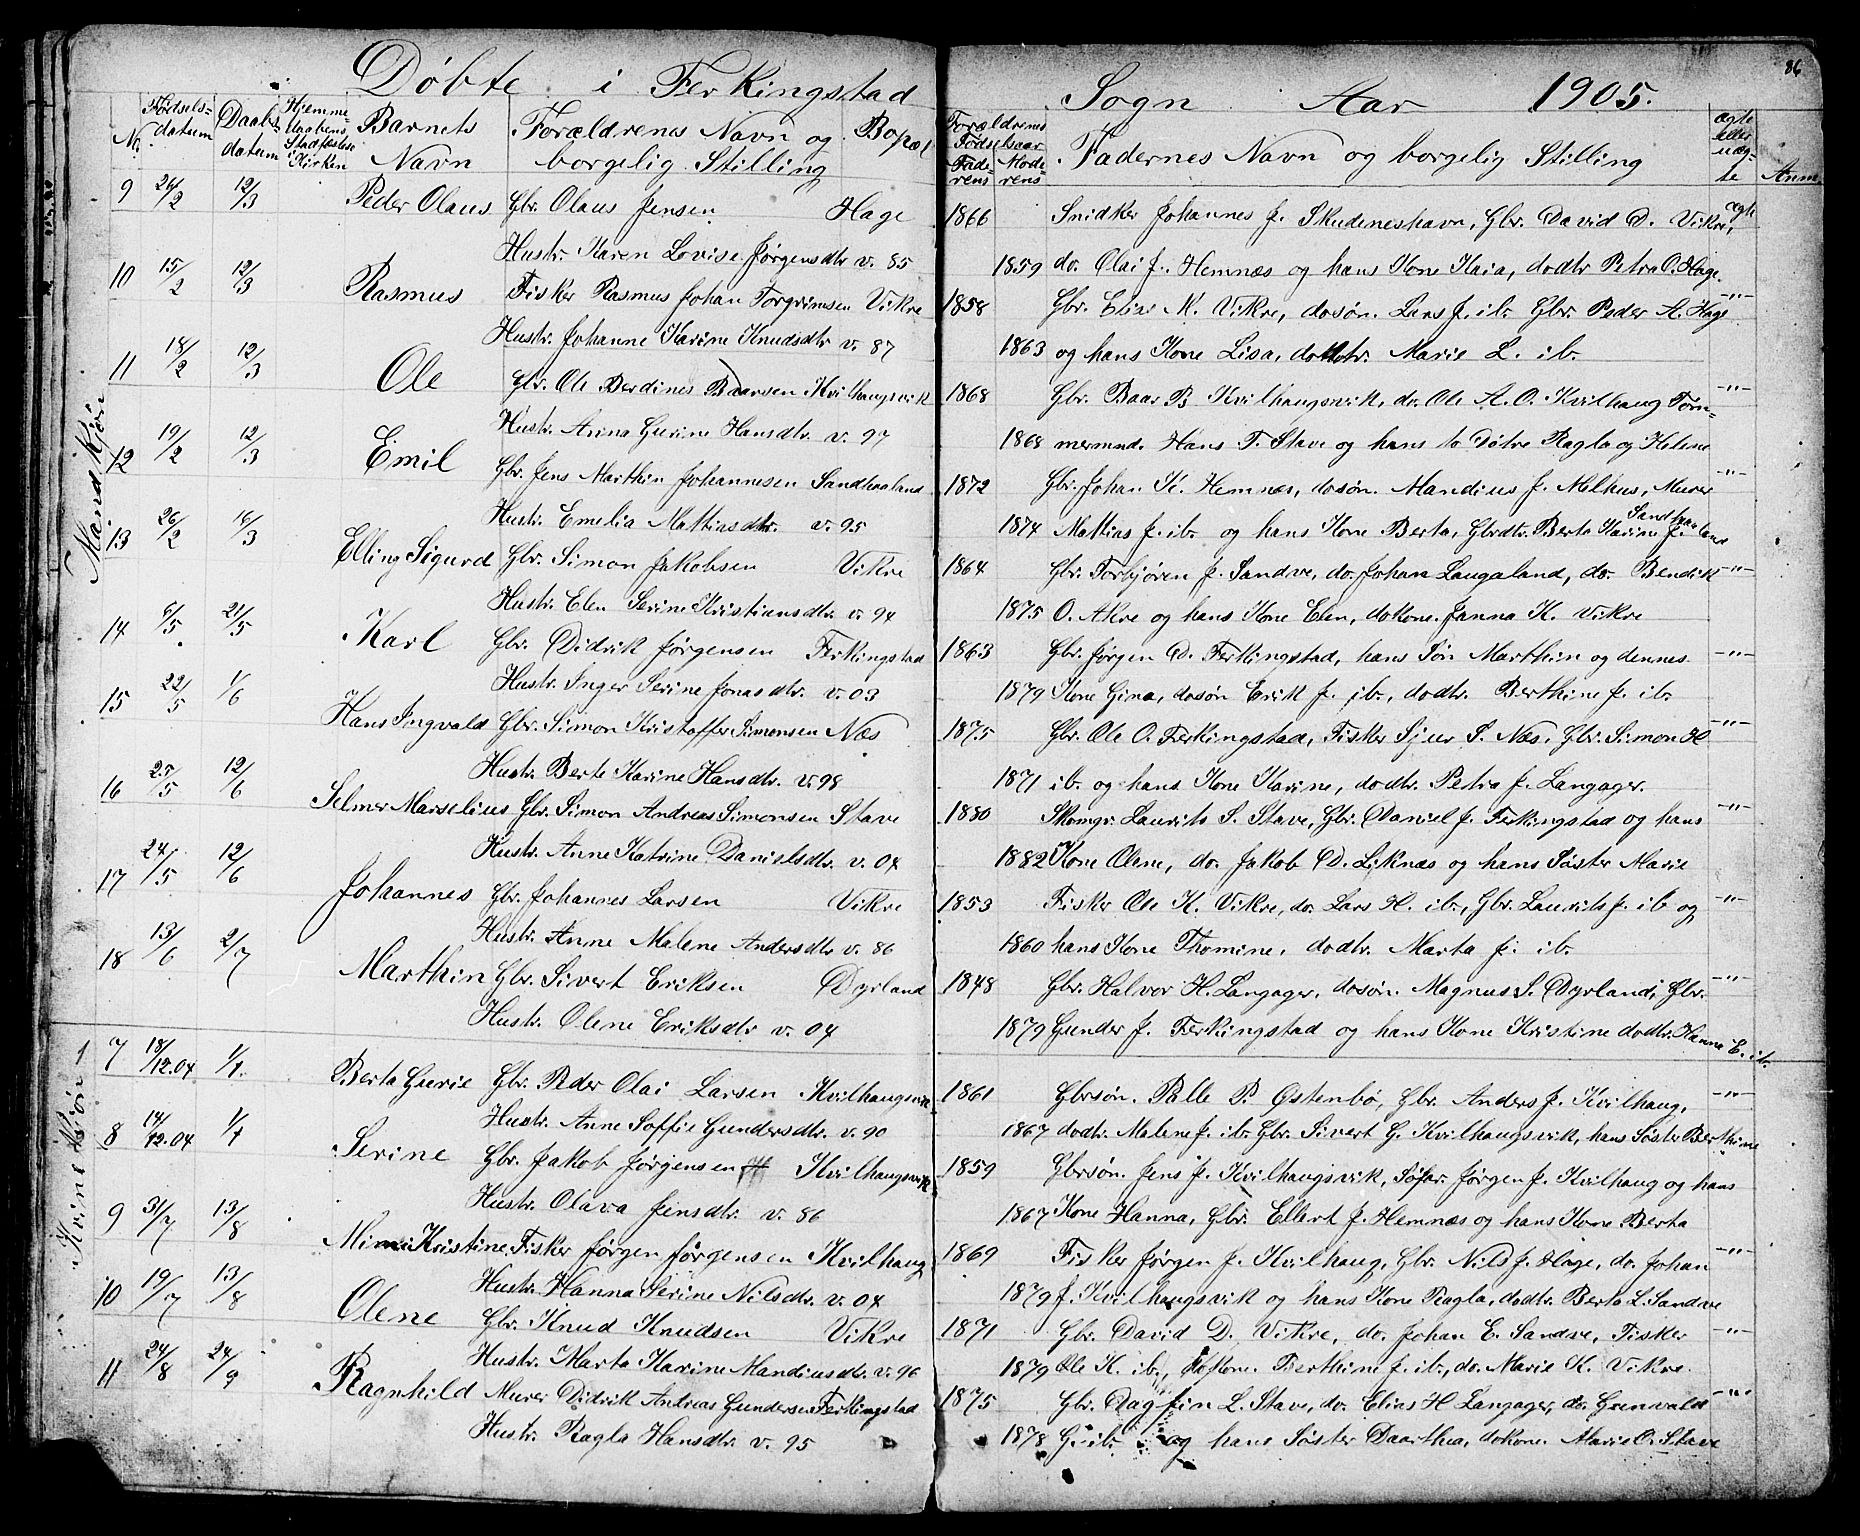 86
Døbte i Ferkingstad Sogn Aar 1905.
No. Fødsels-datum Daabs-datum Hjemme-daabens Stadfæstelse i Kirken Barnets Navn Forældrenes Navn og borgelig Stilling Bopæl Forældrenes Fødselsaar Faderens Moderens Fadernes Navn og borgelig Stilling ægte eller uægte Anm.
Mandkjøn
9 26/2 12/3 Peder Olaus Gbr. Olaus Jensen Hage 1866 Snidker Johannes J. Skudeneshavn, Gbr. David D. Vikre, ægte
Hustr. Karen Lovise Jørgensdtr v. 85 1859 do. Olai J. Hemnæs og hans Kone Kaia, dodtr Petra O. Hage.
10 15/2 12/3 Rasmus Fisker Rasmus Johan Torgrimsen Vikre 1858 Gbr. Elias M. Vikre, dosøn. Lars J. ib. Gbr. Peder A. Hage -"-
Hustr. Johanne Karine Knudsdtr v. 87 1863 og hans Kone Lisa, dodtr. Marie L. ib.
11 18/2 12/3 Ole Gbr. Ole Berdines Baarsen Kvilhaugsvik 1868 Gbr. Baar B Kvilhaugsvik, do. Ole A. O. Kvilhaug Tøm- -"-
Hustr. Anna Gurine Hansdtr. v. 97 1868 mermnd. Hans T. Stave og hans to Døtre Ragla og Helene
12 19/2 12/3 Emil Gbr. Jens Marthin Johannesen Sandhaaland 1872 Gbr. Johan K. Hemnæs, dosøn. Mandius J. Melhus, Murer -"-
Hustr. Emelia Mattiasdtr. v. 95 1874 Mattias J. ib. og hans Kone Berta, Gbrdtr. Berta Karine J. Sandhaaland
13 26/2 16/3 Elling Sigurd Gbr. Simon Jakobsen Vikre 1864 Gbr. Torbjøren J. Sandve, do. Johan Langaland, do. Bendik -"-
Hustr. Elen Serine Kristiansdtr. v. 94 1875 O. Akre og hans Kone Elen, dokone. Janna K. Vikre
14 6/5 21/5 Karl Gbr. Didrik Jørgensen Ferkingstad 1863 Gbr. Jørgen D. Ferkingstad, hans Søn Marthin og dennes -"-
Hustr. Inger Serine Jonasdtr. v. 03 1879 Kone Gina, dosøn Erik J. ib., dodtr. Berthine J. ib.
15 22/5 1/6 Hans Ingvald Gbr. Simon Kristoffer Simonsen Næs 1875 Gbr. Ole O. Ferkingstad, Fisker Sjur S. Næs, Gbr. Simon H -"-
Hustr. Berte Karine Hansdtr. v. 98 1871 ib. og hans Kone Karine, dodtr. Petra J. Langager.
16 25/5 12/6 Selmer Marselius Gbr. Simon Andreas Simonsen Stave 1880 Skomgr. Laurits S. Stave, Gbr. Daniel J. Ferkingstad og hans -"-
Hustr. Anne Katrine Danielsdtr. v. 04 1882 Kone Olene, do. Jakob D. Liknæs og hans Søster Marie
17 24/5 12/6 Johannes Gbr. Johannes Larsen Vikre 1853 Fisker Ole K. Vikre, do. Lars H. ib., Gbr. Laurits J. ib og -"-
Hustr. Anne Malene Andersdtr v. 86 1860 hans Kone Thomine, dodtr. Marta J. ib.
18 13/6 2/7 Marthin Gbr. Sivert Eriksen Dyrland 1848 Gbr. Halvor H. Langager, dosøn. Magnus S. Dyrland, Gbr. -"-
Hustr. Olene Eriksdtr v. 04 1879 Gunder J. Ferkingstad og hans Kone Kristine dodtr. Hanna E. ib.
Kvinnekjøn
7 18/12.04 1/1. Berta Gurie Gbr. Peder Olai Larsen Kvilhaugsvik 1861 Gbrsøn. Palle P. Østenbø, Gbr. Anders J. Kvilhaug, -"-
Hustr. Anne Soffie Gundersdtr. v. 90 1867 dodtr. Malene J. ib. Gbr. Sivert G. Kvilhaugsvik, hans Søster Berthine
8 14/12.04 1/1 Serine Gbr. Jakob Jørgensen Kvilhaugsvik 1859 Gbrsøn. Jens J. Kvilhaugsvik, Søfar. Jørgen J. Kvilhaug og hans
Hustr. Olava Jensdtr. v. 86 1867 Kone Hanna, Gbr. Ellert J. Hemnæs og hans Kone Berta
9 31/7 13/8 Mimi Kristine Fisker Jørgen Jørgensen Kvilhaug 1869 Fisker Jørgen J. Kvilhaug, Gbr. Nils J. Hage, do. Johan -"-
Hustr. Hanna Serine Nilsdtr. v. 04 1879 J. Kvilhaugsvik og hans Kone Ragla, dodtr. Berta L. Sandve
10 19/7 13/8 Olene Gbr. Knud Knudsen Vikre 1871 Gbr. David D. Vikre, do. Johan E. Sandve, Fisker -"-
Hustr. Marta Karine Mandiusdtr. v. 96 1879 Ole K. ib., dokone. Berthine J. ib., do. Marie K. Vikre.
11 24/8 24/9 Ragnhild Murer Didrik Andreas Gundersen Ferkingstad 1875 Gbr. Dagfin L. Stave, do. Elias H Langager, do. Gunvald -"-
Hustr. Ragla Hansdtr. v. 95 1878 G. ib. og hans Søster Daarthea, dokone. Marie O. Stave